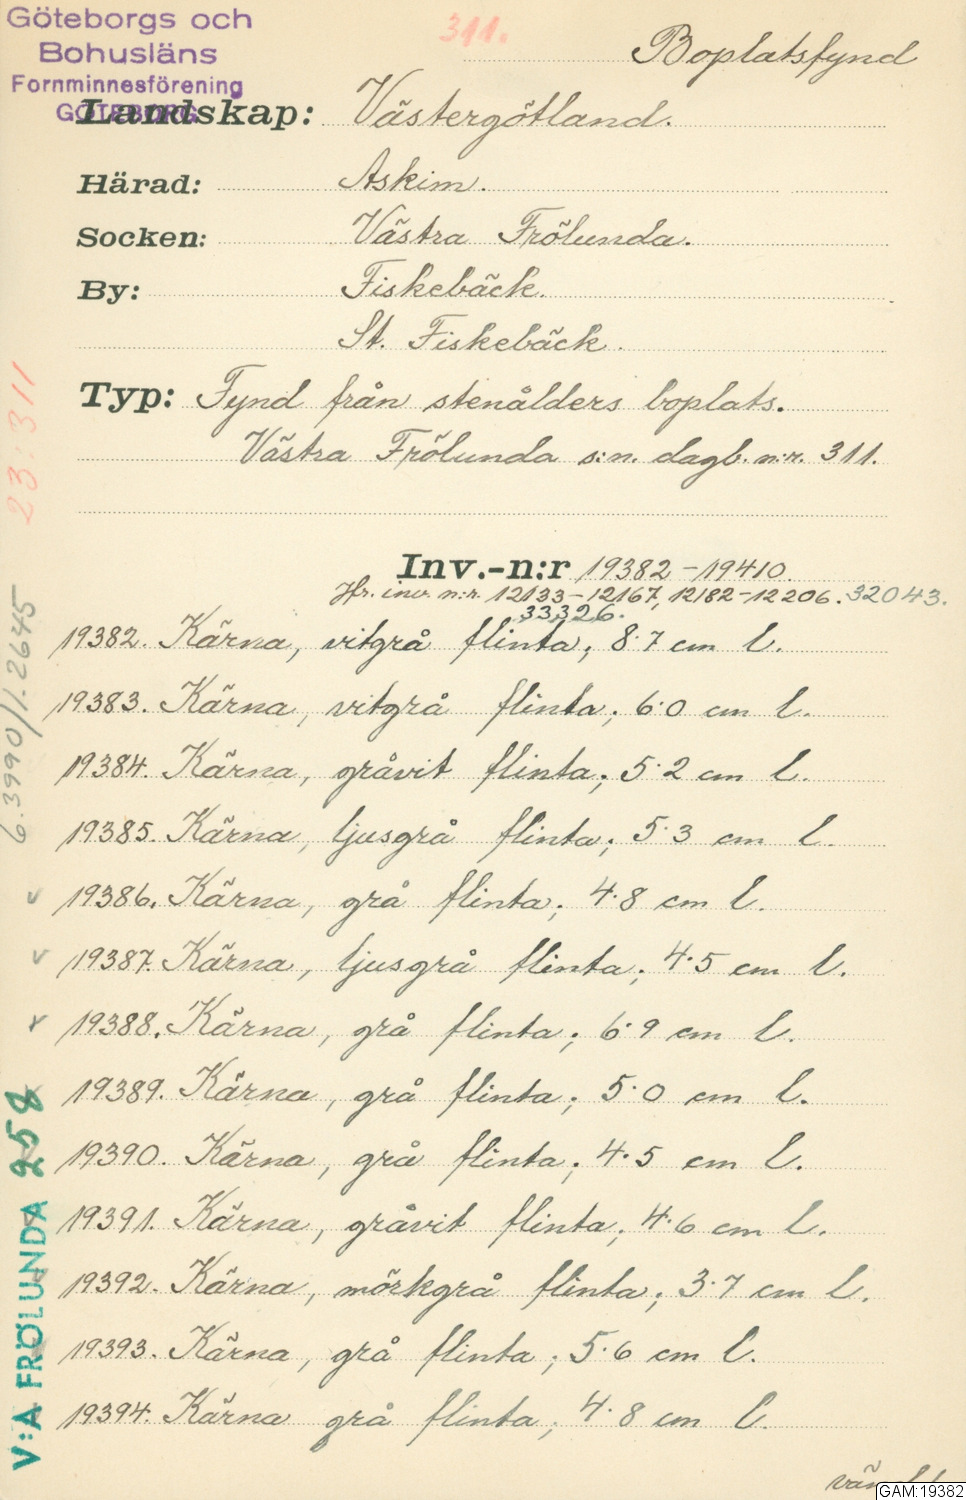 Göteborgs och
Bohusläns
Fornminnesförening
GÖTEBORG
311.
Boplatsfynd
Landskap: Västergötland.
Härad: Askim.
Socken: Västra Frölunda.
By: Fiskebäck.
St. Fiskebäck.
Typ: Fynd från stenålders boplats.
Västra Frölunda s:n. dagb. n:r. 311.
Inv.-n:r 19382-19410.
Jfr. inv. n:r. 12133-12167, 12182-12206. 32043.
33326.
19382. Kärna, vitgrå flinta; 8·7 cm l.
19383. Kärna, vitgrå flinta; 6·0 cm l.
19384. Kärna, gråvit flinta; 5·2 cm l.
19385. Kärna, ljusgrå flinta; 5·3 cm l.
v 19386. Kärna, grå flinta; 4·8 cm l.
v 19387. Kärna, ljusgrå flinta; 4·5 cm l.
v 19388. Kärna, grå flinta; 6·9 cm l.
19389. Kärna, grå flinta; 5·0 cm l.
19390. Kärna, grå flinta; 4·5 cm l.
19391. Kärna, gråvit flinta; 4·6 cm l.
19392. Kärna, mörkgrå flinta; 3·7 cm l.
19393. Kärna, grå flinta; 5·6 cm l.
19394. Kärna grå flinta; 4·8 cm l.
GAM:19382
23:311
6.3990/1.2645
V:A FRÖLUNDA 258